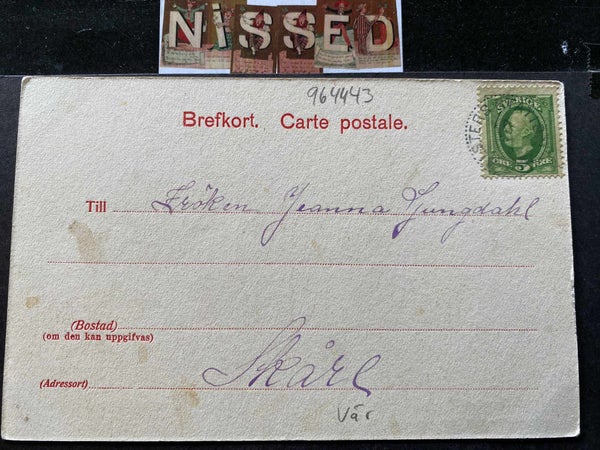 NiSSED
964443
Brefkort. Carte postale.
SVERIGE
ÖRE 5 ÖRE
STER
Till Fröken Jeanna Ljungdahl
(Bostad)
(om den kan uppgifvas)
(Adressort) Skåre
Vår